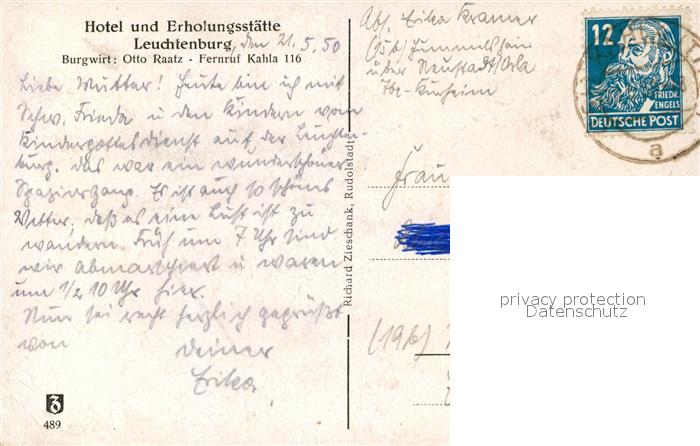 Hotel und Erholungsstätte
Leuchtenburg, den 21.5.50
Burgwirt: Otto Raatz - Fernruf Kahla 116
Liebe Mutter! Heute bin ich mit
Schw. Frieda u den Kindern vom
Kindergottesdienst auf der Leuchten-
burg. Das war ein wunderschöner
Spaziergang. Es ist auch so schönes
Wetter, daß es eine Lust ist zu
wandern. Früh um 7 Uhr sind
wir abmarschiert u waren
um 1/2 10 Uhr hier.
Nun sei recht herzlich gegrüßt
von Deiner
Erika
489
Richard Zieschank, Rudolstadt
Abs. Erika Kramer
(15b) Hummelshain
über Neustadt/Orla
12
FRIEDR. ENGELS
DEUTSCHE POST
a
Frau
(19b)
privacy protection
Datenschutz